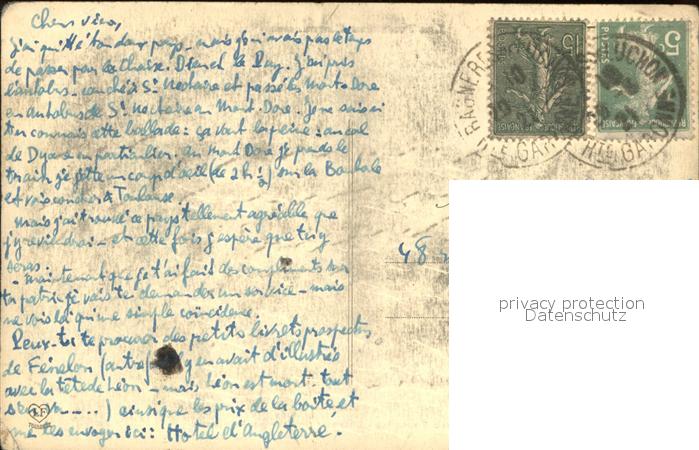 Chers vieux,
J'ai quitté ton doux pays - mais je n'avais pas le temps
de passer par la Chaise Dieu et le Puy. J'ai pris
l'autobus - couché à St Nectaire et passé les Monts Dore
en autobus de St Nectaire au Mont Dore. Je ne sais si
tu connais cette ballade : ça vaut la peine : au col
de Dyane en particulier. Au Mont Dore je prends le
train, je jette un coup d'oeil (de 2 h ½) sur la Bourboule
et vais coucher à Toulouse.
Mais j'ai trouvé ce pays tellement agréable que
j'y reviendrai - et cette fois j'espère que tu y
seras.
- Maintenant que je t'ai fait des compliments sur
ta patrie je vais te demander un service - mais
ne vois là qu'une simple coïncidence.
Peux-tu te procurer des petits livrets prospectus
de Fénelon (autrefois il y en avait d'illustrés
avec la tête de Léon - mais Léon est mort. tout
.....) ainsi que les prix de la boîte, et
me les envoyer ici : Hotel d'Angleterre.
48
15
RÉPUBLIQUE FRANÇAISE
5
POSTES
HTE GARONNE
privacy protection
Datenschutz